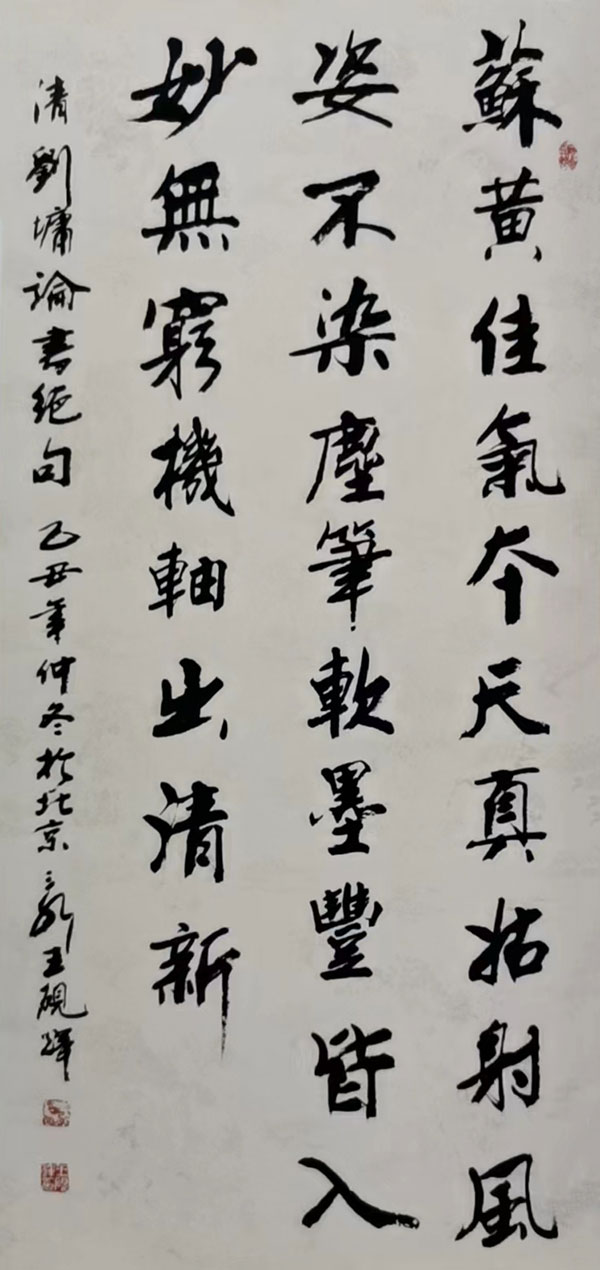 蘇黄佳氣本天真姑射風
姿不染塵筆軟墨豐皆入
妙無窮機軸出清新
清劉墉論書絕句 己丑年仲冬於北京 王硯輝